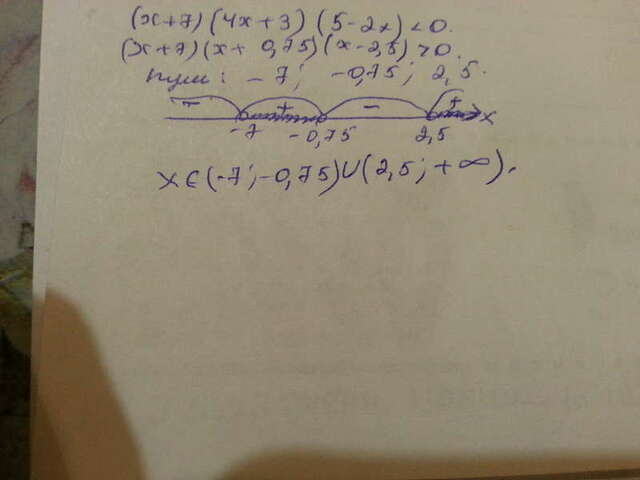 (x+7)(4x+3)(5-2x)<0.
(x+7)(x+0,75)(x-2,5)>0.
нули: -7; -0,75; 2,5.
- + - +
-7 -0,75 2,5 x
x∈(-7;-0,75)∪(2,5;+∞).